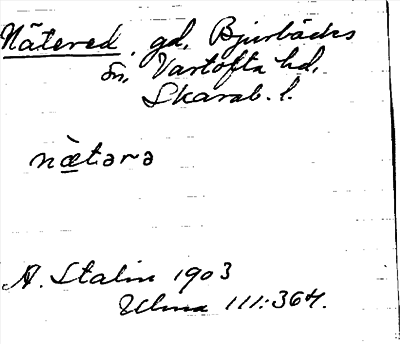 Nätered, gd, Bjurbäcks
sn, Vartofta hd,
Skarab. l.
nætərə
A. Stalin 1903
Ulma 111:364.